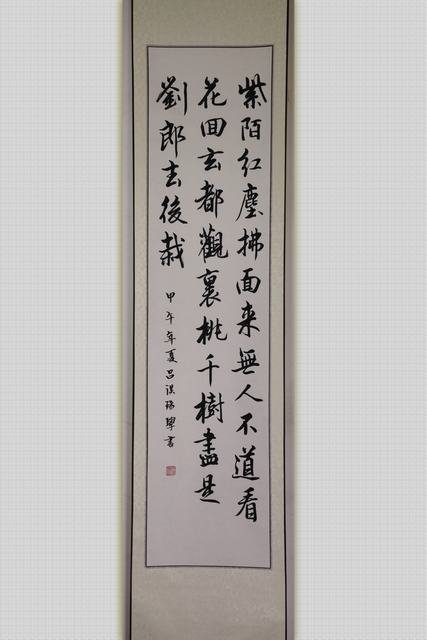 紫陌红塵拂面来無人不道看
花回玄都觀裏桃千樹盡是
劉郎去後栽
甲午年夏吕學書